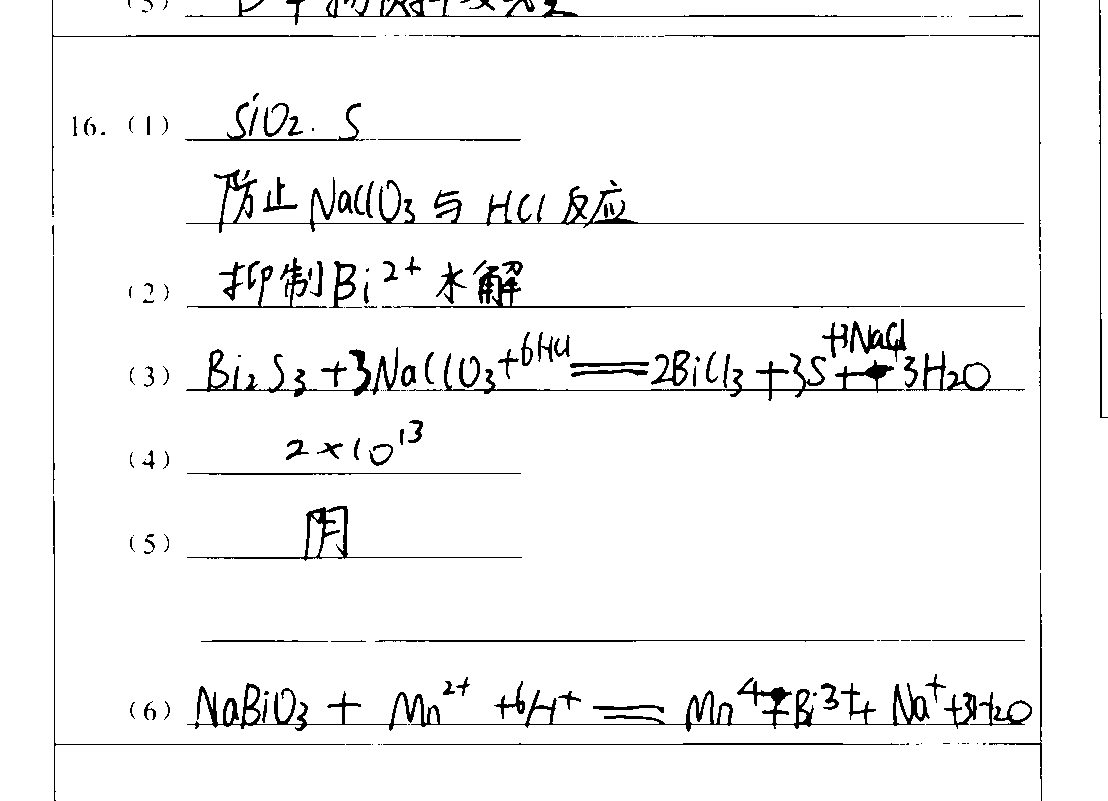 16. (1) SiO₂. S
防止NaClO₃与HCl反应
(2) 抑制Bi²⁺水解
(3) Bi₂S₃+3NaClO₃+6HCl══2BiCl₃+3S+NaCl+3H₂O
(4) 2×10¹³
(5) 阴
(6) NaBiO₃+Mn²⁺+6H⁺══Mn⁴⁺+Bi³⁺+Na⁺+3H₂O